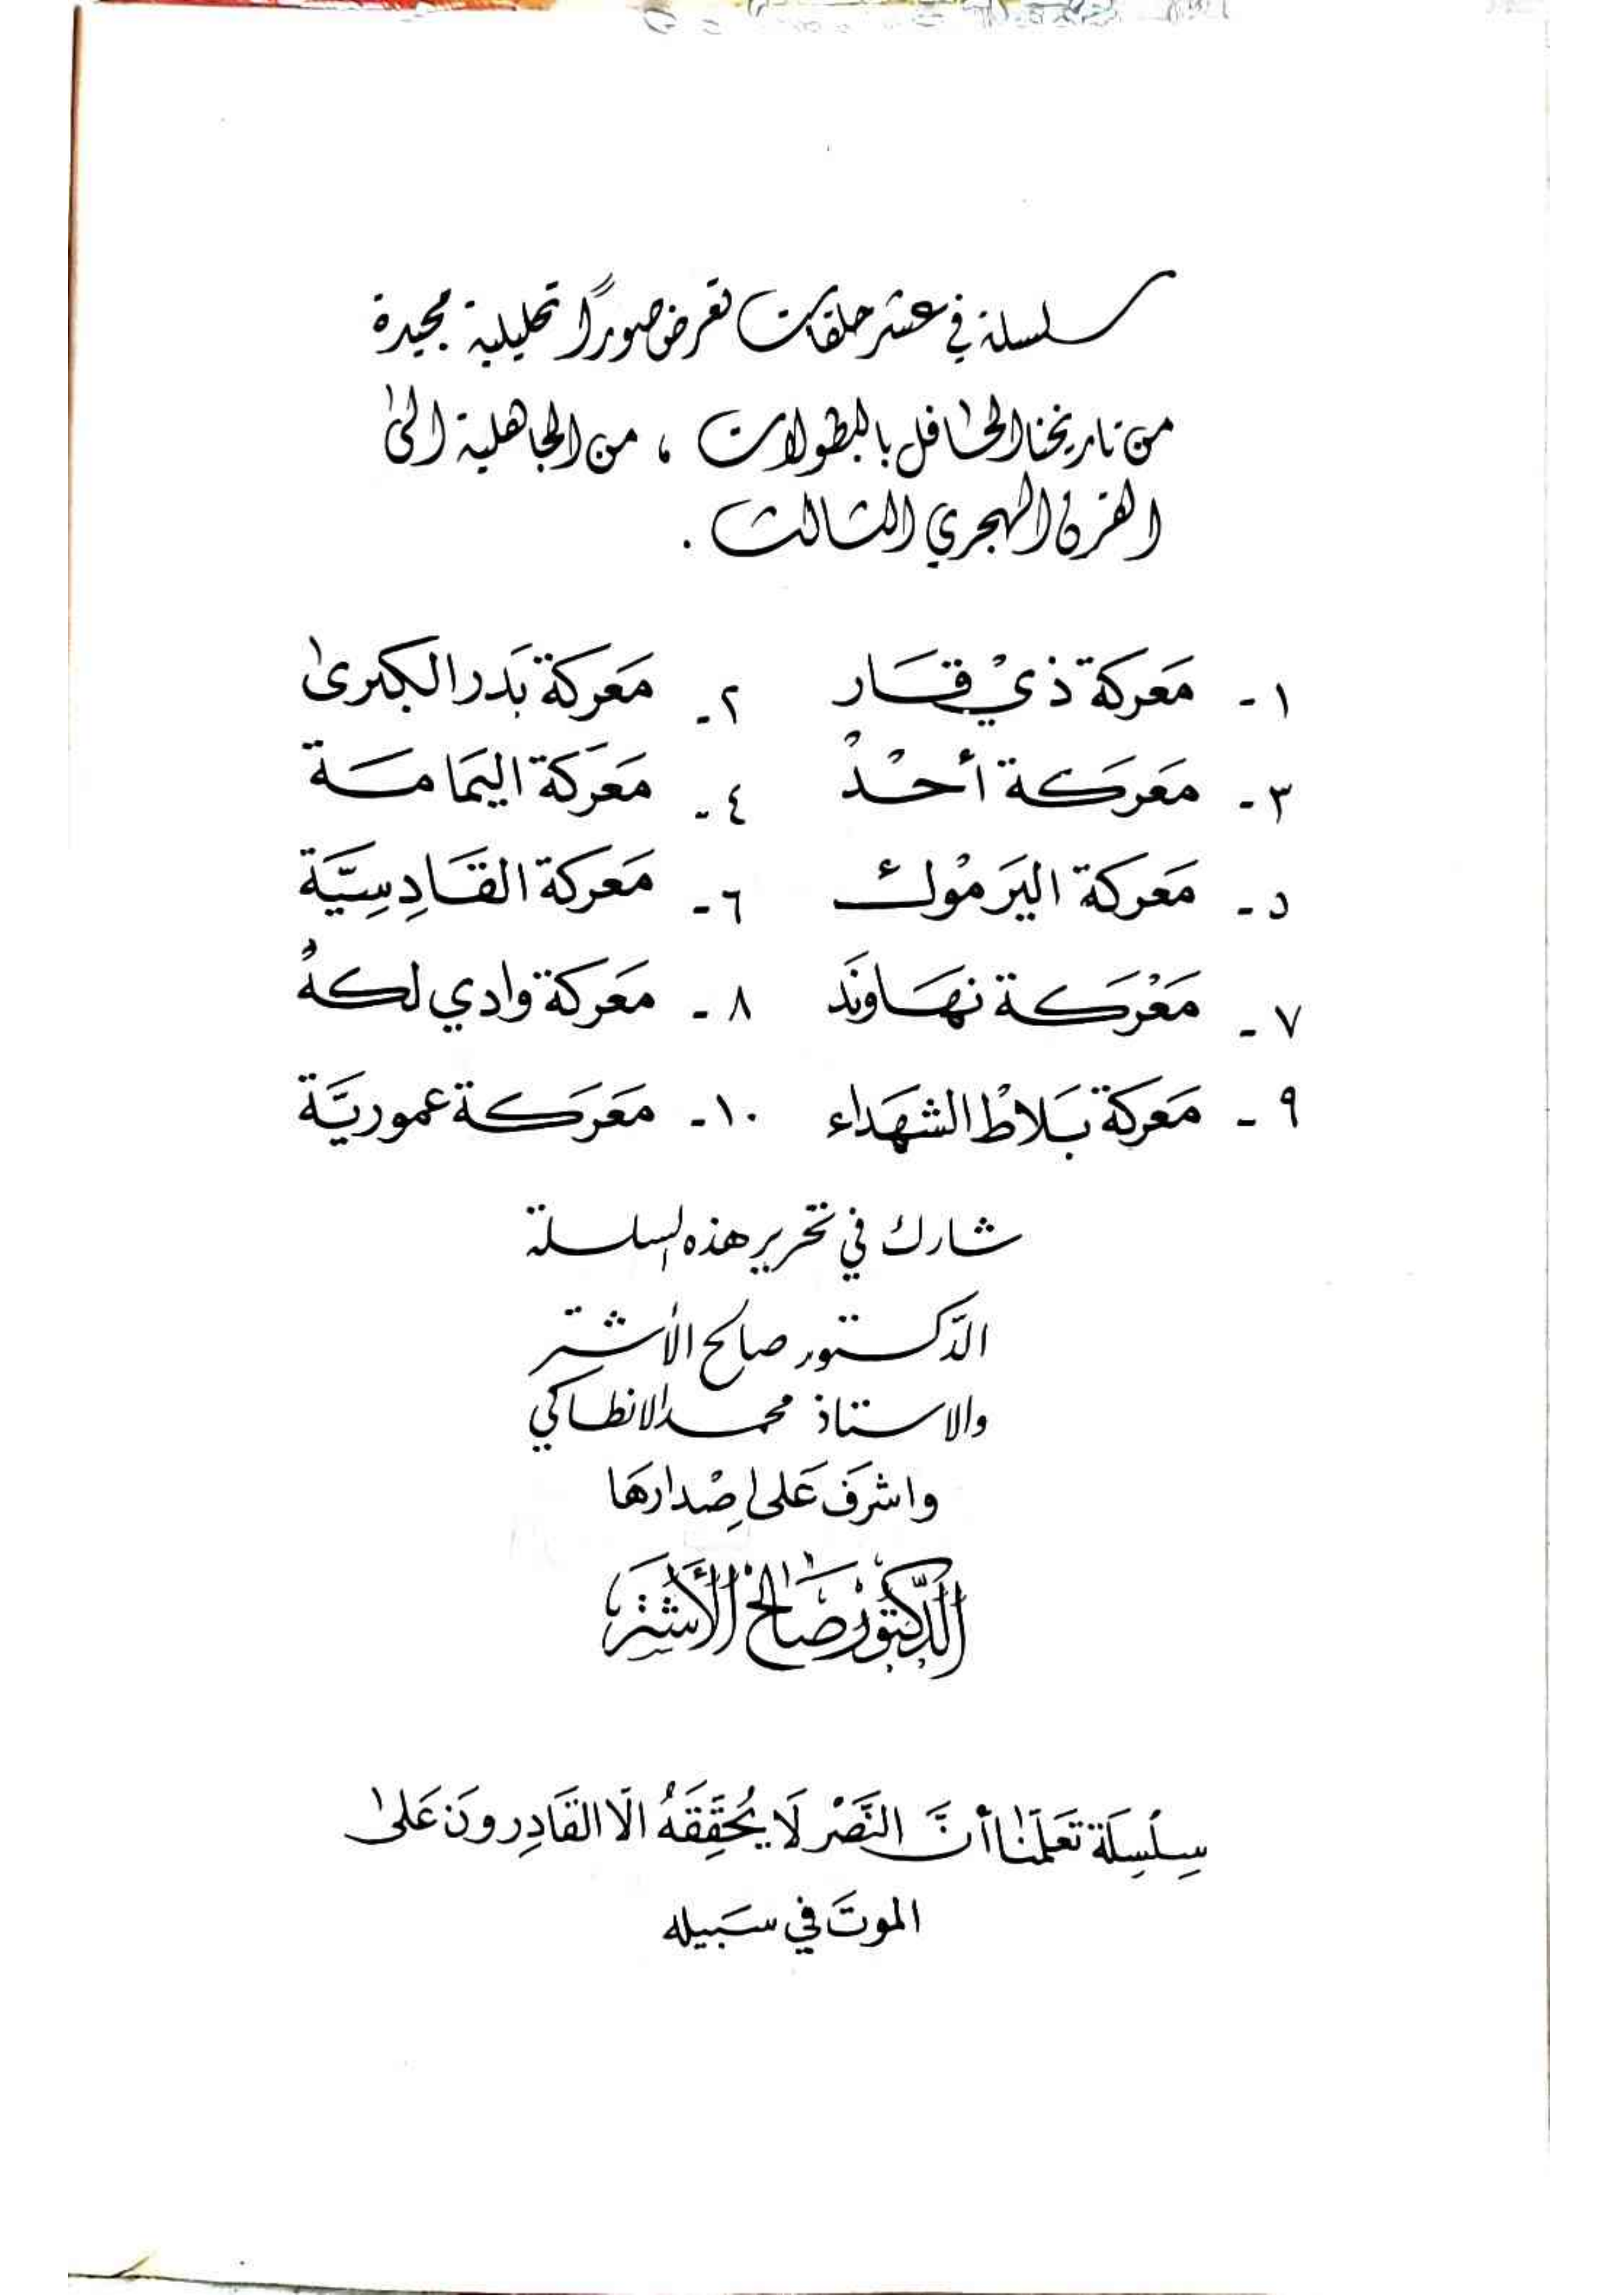 سلسلة في عشر حلقات تعرض صورًا تحليلية مجيدة
من تاريخنا الحافل بالبطولات ، من الجاهلية الى
القرن الهجري الثالث .
١ - مَعركة ذيْ قَار ٢ - مَعركة بَدر الكبرىٰ
٣ - مَعَركَة أُحُدْ ٤ - مَعَركة اليَمَامَة
٥ - مَعركة اليَرموُك ٦ - مَعركة القَادِسِيَّة
٧ - مَعْركَة نهَاوَند ٨ - مَعركة وادي لكهُ
٩ - مَعركة بَلاطْ الشهَداء ١٠ - مَعَركَة عموريَّة
شارك في تحرير هذه السلسلة
الدَّكتور صالح الأشتر
والاستاذ محمد الانطاكي
واشرَف عَلى اِصْدارهَا
الدكتور صَالح الأَشتَر
سِلْسِلَة تَعَلّمنَا أنَّ النَّصْر لَا يُحَقِّقَهُ الّا القَادِرونَ عَلىٰ
الموتَ في سَبيله